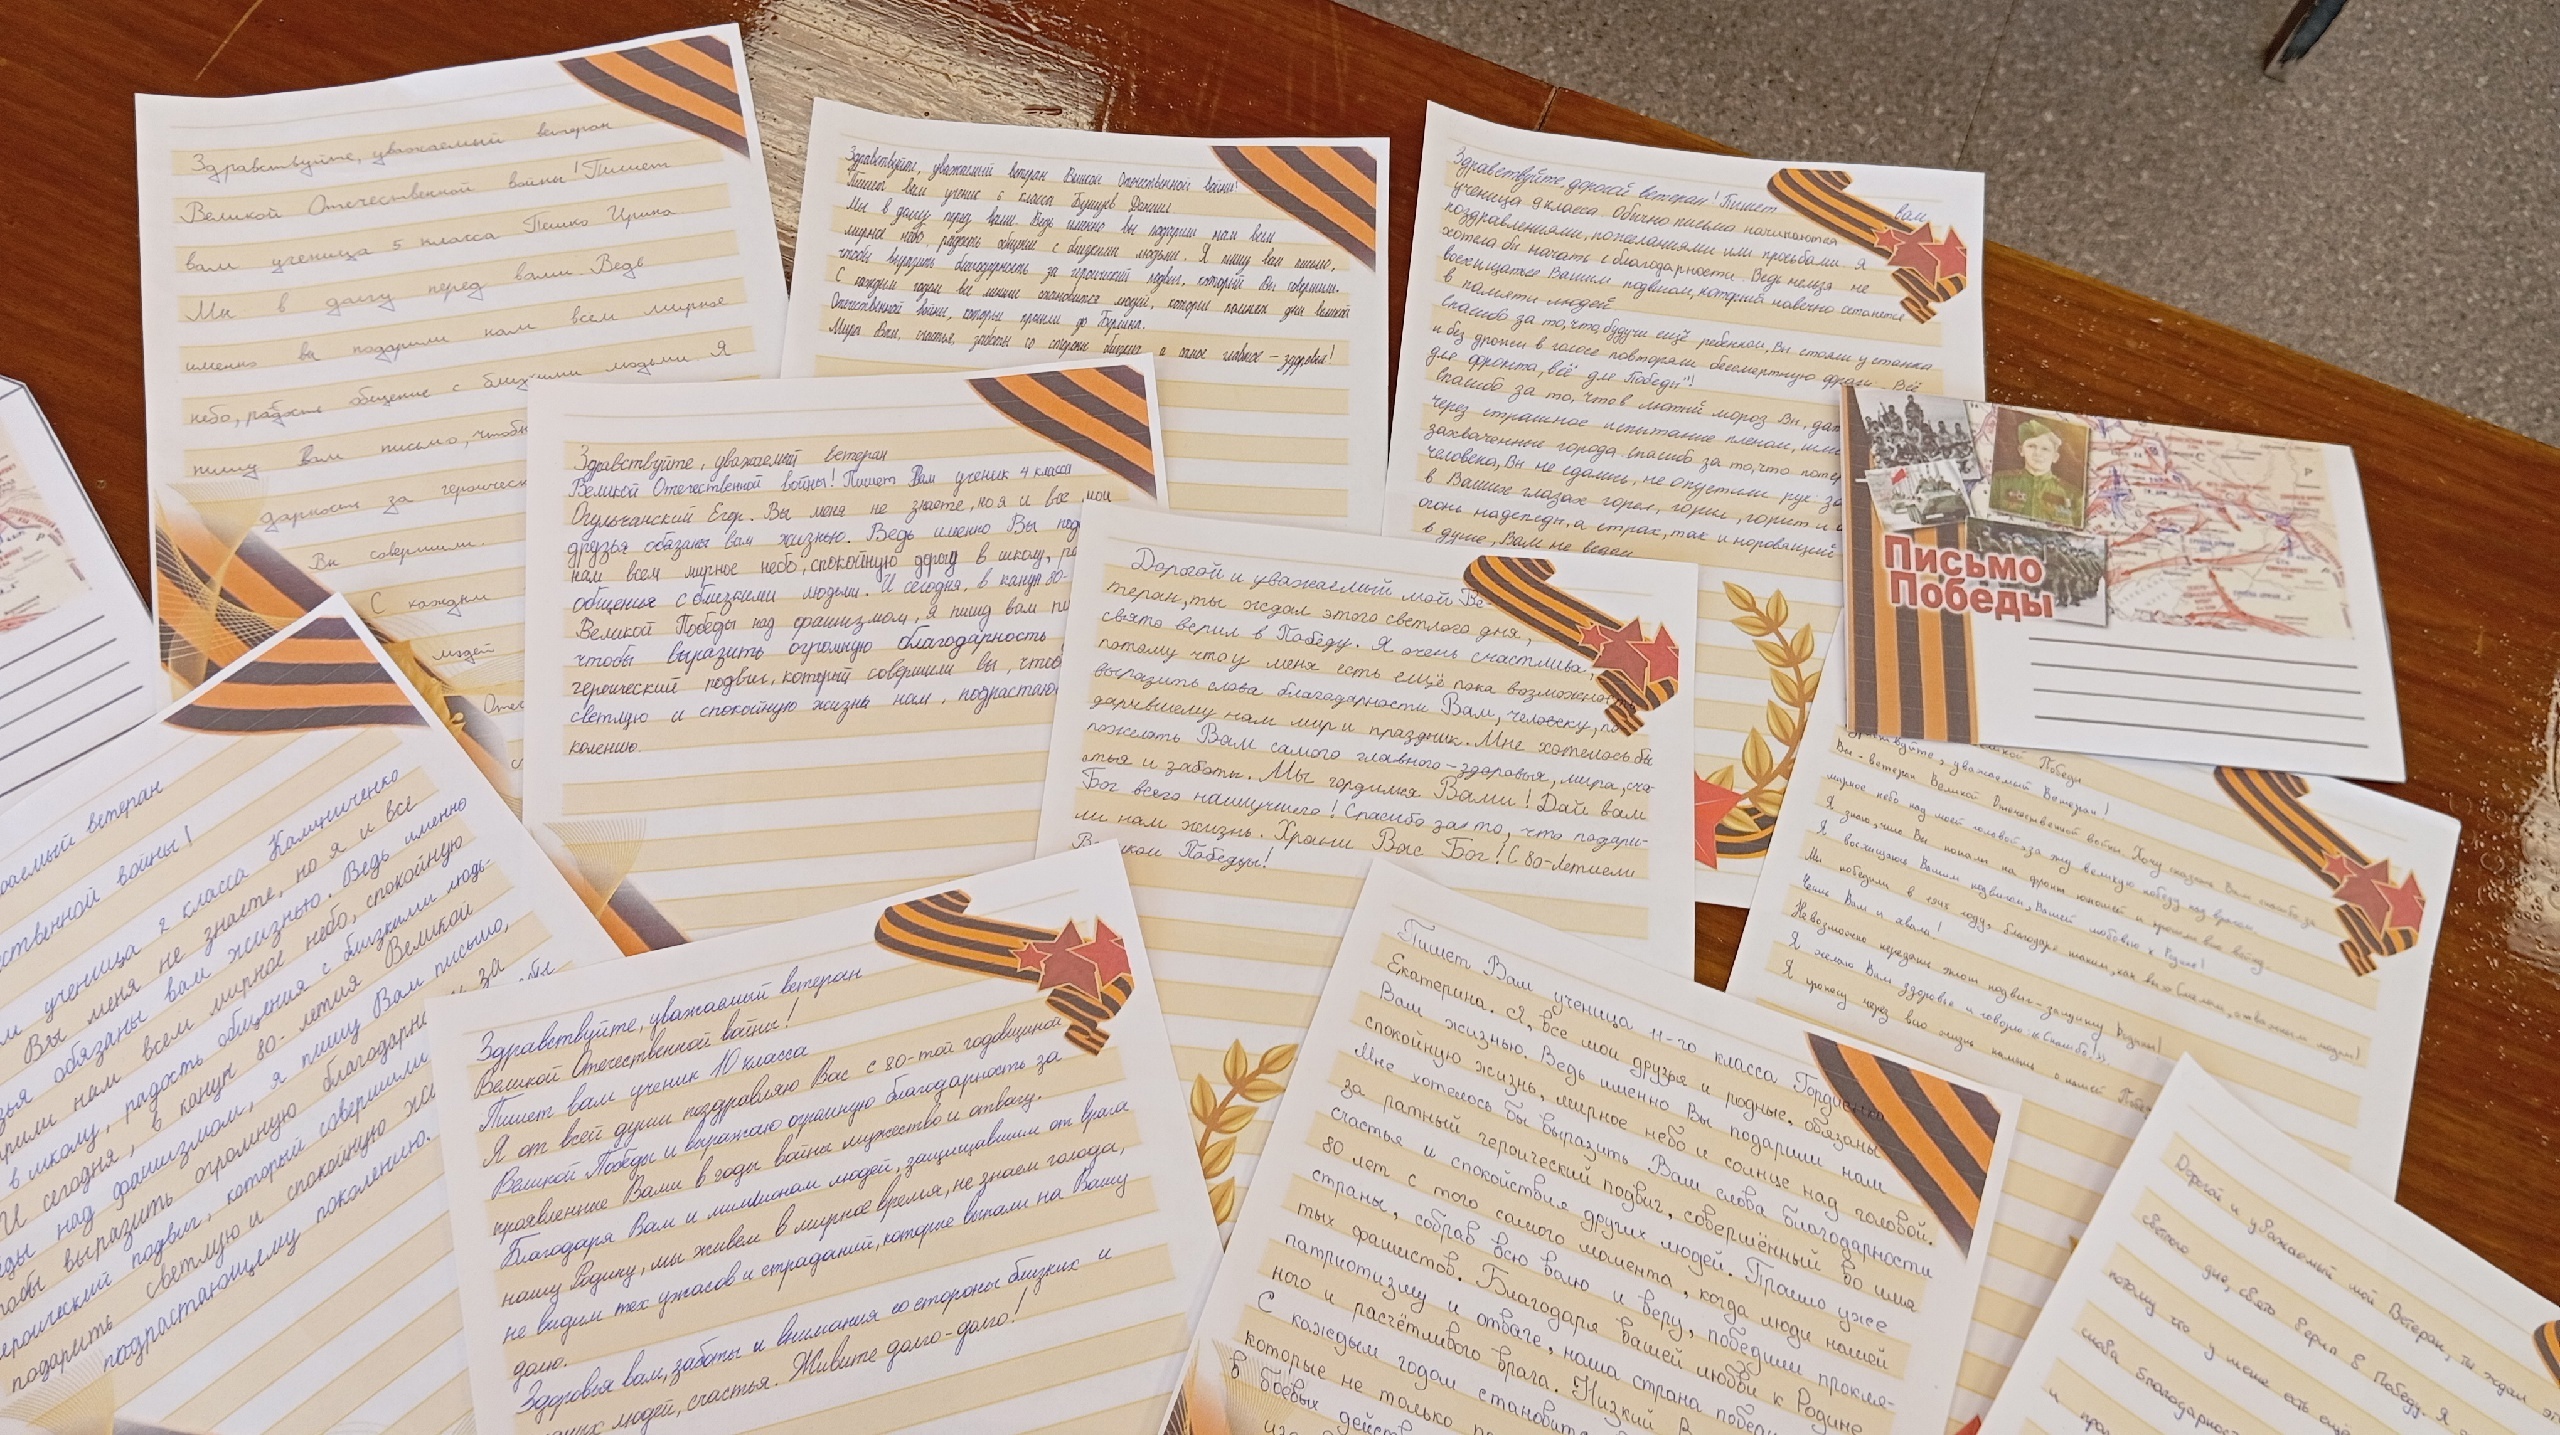 Здравствуйте, уважаемый ветеран
Великой Отечественной войны! Пишет
вам ученица 5 класса Пешко Ирина
Мы в долгу перед вами. Ведь
именно ва подарили нам всем мирное
небо, радость общение с близкими людьми. Я
пишу Вам письмо, чтобы
дарность за героическ
Вы совершили.
С каждым
людей
Отес
Здравствуйте, уважаемый ветеран Великой Отечественной войны!
Пишет вам ученик 6 класса Даниил
Мы в долгу перед вами. Ведь именно вы подарили нам всем
мирное небо, радость общение с близкими людьми. Я пишу вам письмо,
чтобы выразить благодарность за героический подвиг, который Вы совершили.
С каждым годом все меньше становится людей, которые помнят дни великой
Отечественной войны, которые прошли до Берлина.
Мира Вам, счастья, заботы со стороны близких и самое главное – здоровья!
Здравствуйте, дорогой ветеран! Пишет вам
ученица 9 класса. Обычно письма начинаются
поздравлениями, пожеланиями или просьбами. Я
хотела бы начать с благодарности. Ведь нельзя не
восхищаться Вашим подвигом, который навечно останется
в памяти людей.
Спасибо за то, что, будучи ещё ребенком, Вы стояли у станка
и без дрожи в голосе повторяли бессмертную фразу: "Всё
для фронта, всё для Победы"!
Спасибо за то, что в лютый мороз Вы,
через страшное испытание пленом,
захваченные города. Спасибо за то, что
человека, Вы не сдались, не опустили рук.
в Ваших глазах горел, горит и
огонь надежды, а страх, так и норовящий
в душе, Вам не ведом
Здравствуйте, уважаемый ветеран
Великой Отечественной войны! Пишет Вам ученик 4 класса
Огульчанский Егор. Вы меня не знаете, но я и все мои
друзья обязаны вам жизнью. Ведь именно Вы под
нам всем мирное небо, спокойную дорогу в школу, ра
общения с близкими людьми. И сегодня, в канун 80-
Великой Победы над фашизмом, я пишу вам пи
чтобы выразить огромную благодарность
героический подвиг, который совершили вы, чтоб
светлую и спокойную жизнь нам, подрастаю
колению.
Письмо
Победы
Дорогой и уважаемый мой Ве-
теран, ты ждал этого светлого дня,
свято верил в Победу. Я очень счастлива,
потому что у меня есть ещё пока возможность
выразить слова благодарности Вам, человеку, по-
дарившему нам мир и праздник. Мне хотелось бы
пожелать Вам самого главного – здоровья, мира, сча-
тья и заботы. Мы гордимся Вами! Дай вам
Бог всего наилучшего! Спасибо за то, что подари-
ли нам жизнь. Храни Вас Бог! С 80-летием
Великой Победы!
уважаемый Ветеран!
Вы - ветеран Великой Отечественной войны. Хочу сказать Вам спасибо за
мирное небо над моей головой, за эту великую победу над врагом.
Я знаю, что Вы попали на фронт юношей и прошли всю войну.
Я восхищаюсь Вашим подвигом, Вашей любовью к Родине!
Мы победили в 1945 году, благодаря таким, как вы
Честь Вам и хвала!
Невозможно передать этот подвиг - защитку Родины!
Я желаю Вам здоровья и говорю: «Спасибо!».
Я пронесу через всю жизнь память о нашей Побе
аемый ветеран
ественной войны!
ученица 2 класса Калиниченко
Вы меня не знаете, но я и все
зья обязаны вам жизнью. Ведь именно
рили нам всем мирное небо, спокойную
в школу, радость общения с близкими людь-
И сегодня, в канун 80-летия Великой
еды над фашизмом, я пишу Вам письмо,
чтобы выразить огромную благодарн
ероический подвиг, который совершили
подарить светлую и спокойную жи
подрастающему поколению.
Здравствуйте, уважаемый ветеран
Великой Отечественной войны!
Пишет вам ученик 10 класса
Я от всей души поздравляю Вас с 80-той годовщиной
Великой Победы и выражаю огромную благодарность за
проявленные Вами в годы войны мужество и отвагу.
Благодаря Вам и миллионам людей, защищавшим от врага
нашу Родину, мы живем в мирное время, не знаем голода,
не видим тех ужасов и страданий, которые выпали на Вашу
долю.
Здоровья вам, заботы и внимания со стороны близких и
людей, счастья. Живите долго-долго!
Пишет Вам ученица 11-го класса Гордиенко
Екатерина. Я, все мои друзья и родные обязаны
Вам жизнью. Ведь именно Вы подарили нам
спокойную жизнь, мирное небо и солнце над головой.
Мне хотелось бы выразить Вам слова благодарности
за ратный героический подвиг, совершённый во имя
счастья и спокойствия других людей. Прошло уже
80 лет с того самого момента, когда люди нашей
страны, собрав всю волю и веру, победили прокля-
тых фашистов. Благодаря вашей любви к Родине
патриотизму и отваге, наша страна победи
ного и расчётливого врага. Низкий В
С каждым годом становит
которые не только
в боевых действ
Дорогой и уважаемый мой Ветеран, ты ждал эт
светлого дня, свято верил в Победу. Я
потому что у меня есть ещё
слова благодарнос
и пра